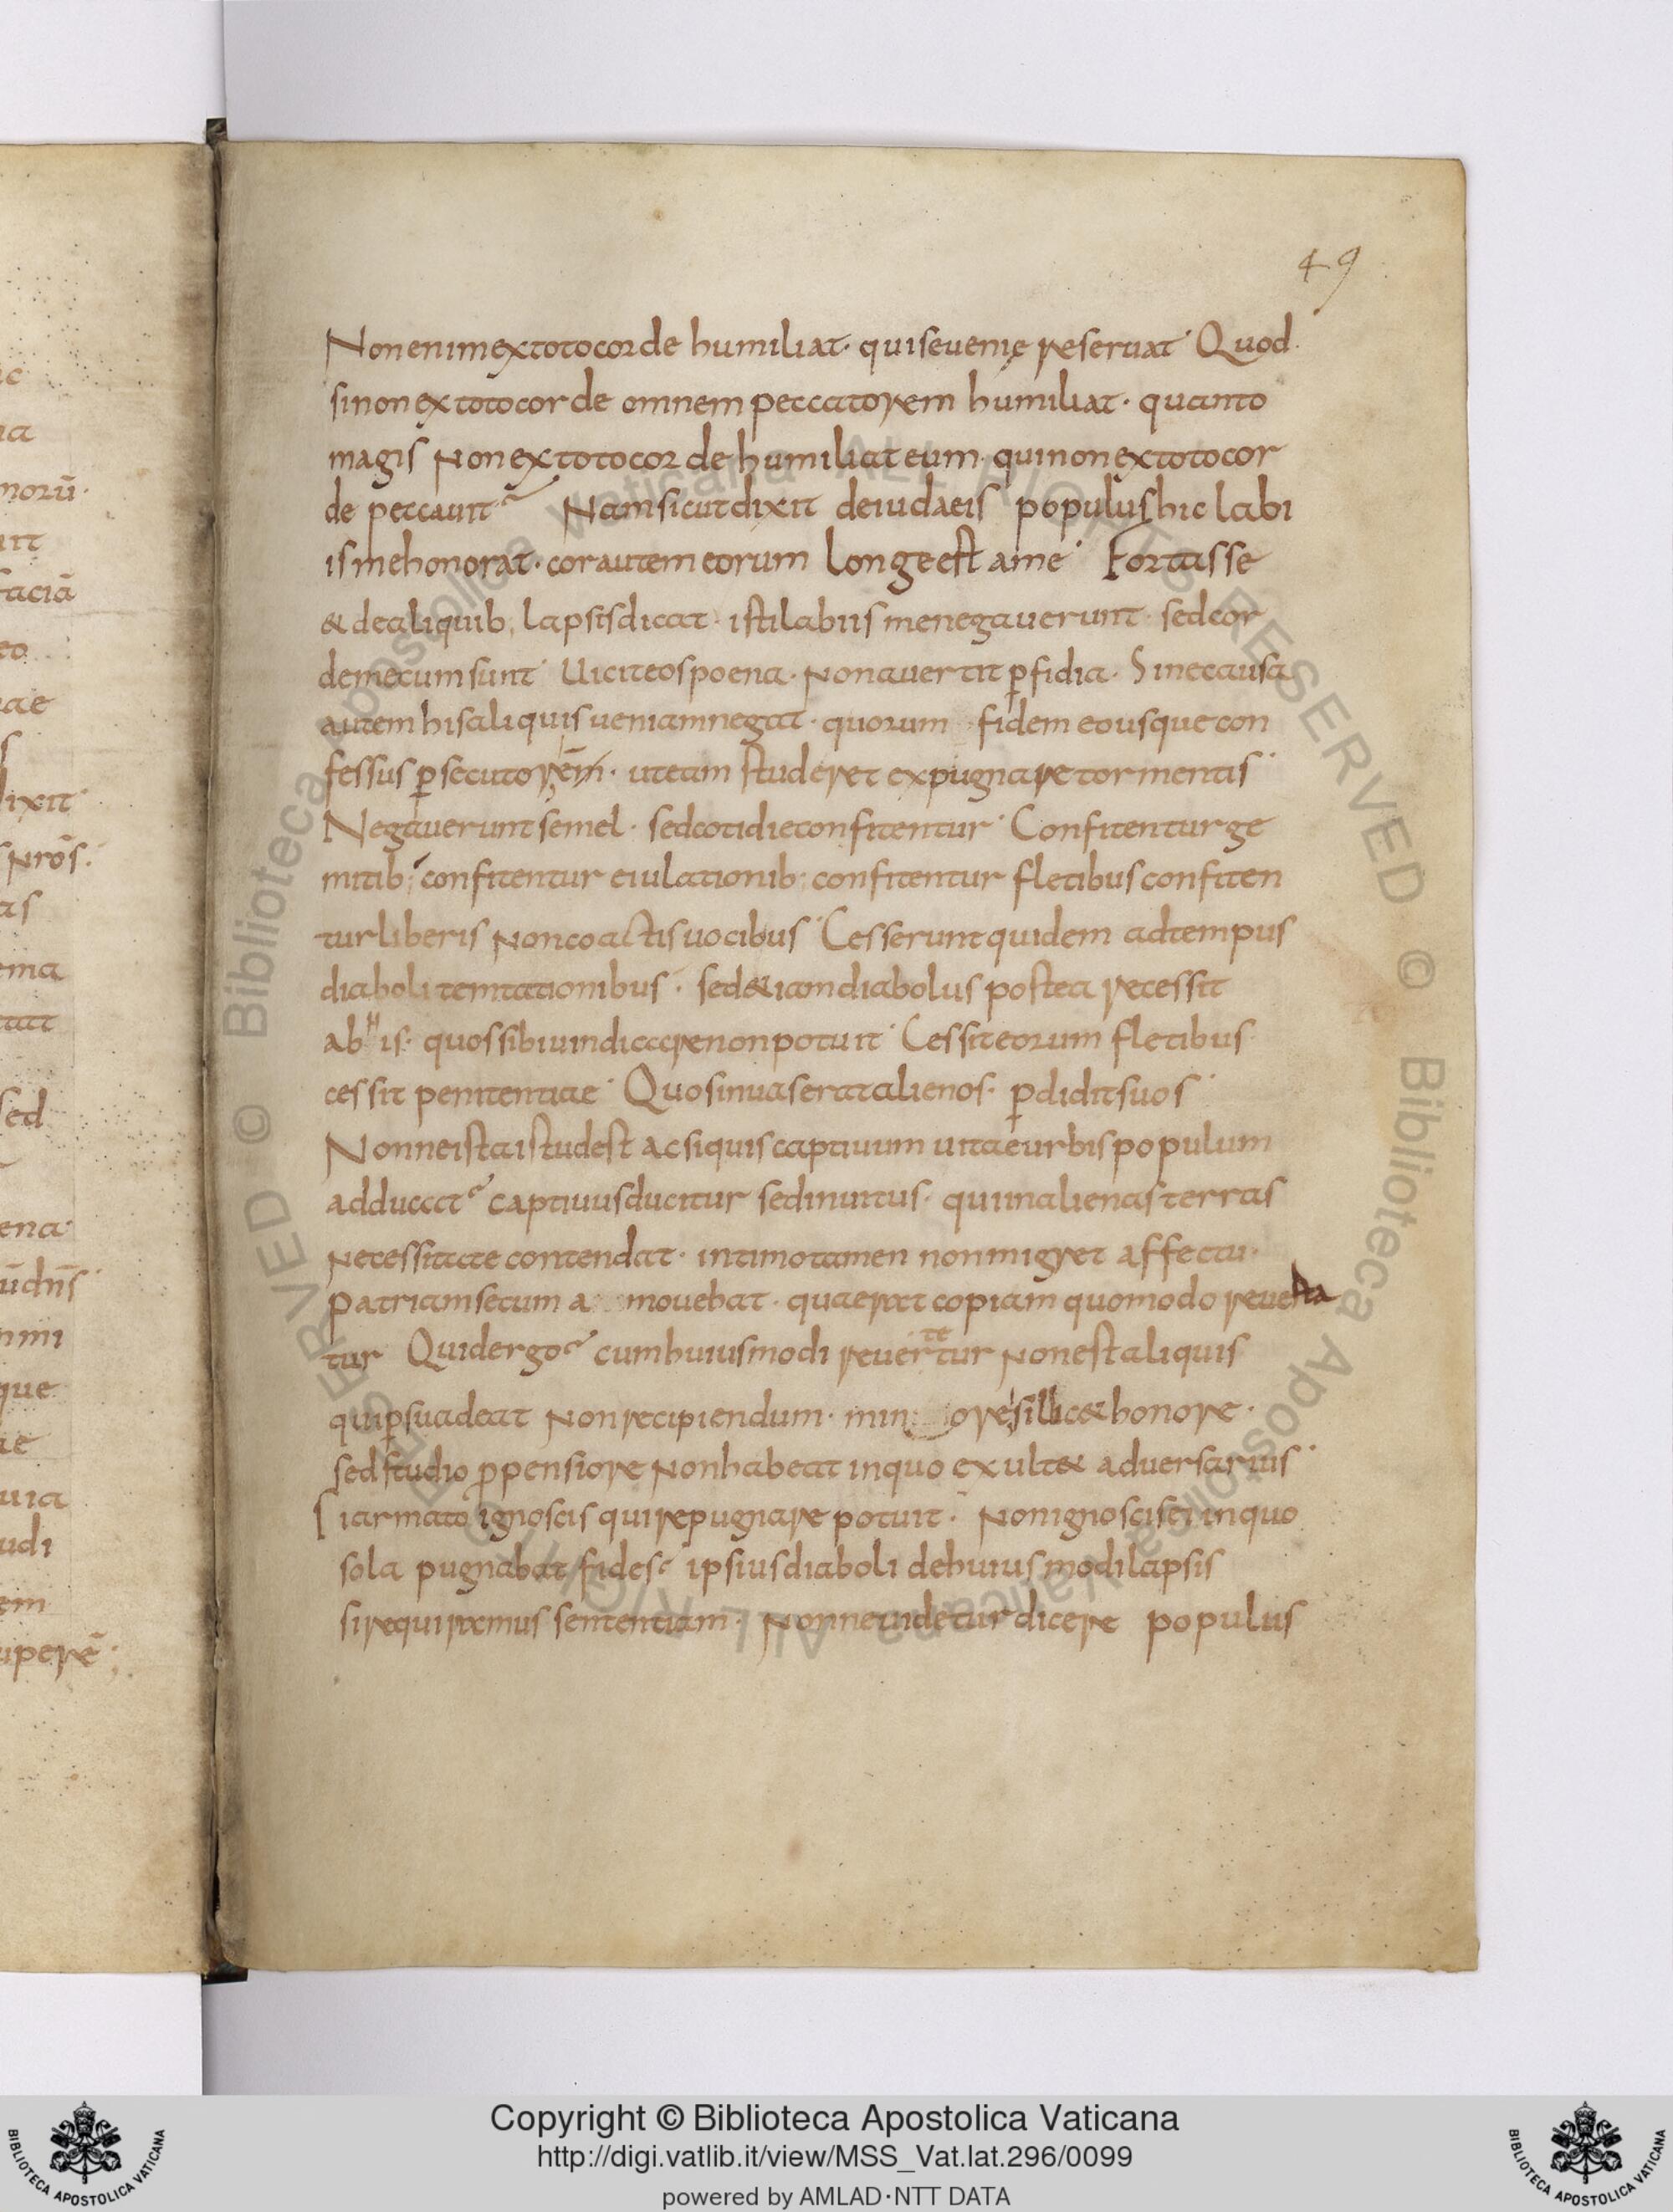 49
Non enim ex toto corde humiliat· qui se venię reservat· Quod
si non ex toto corde omnem peccatorem humiliat· quanto
magis non ex toto corde humiliat eum· qui non ex toto cor
de peccavit? Nam sicut dixit de iudaeis populus hic labi
is me honorat· cor autem eorum longe est a me· Fortasse
& de aliquib; lapsis dicat· isti labiis me negaverunt· sed cor
de mecum sunt· Uicit eos poena· non avertit p̱fidia· Sine causa
autem his aliquis veniam negat· quorum fidem eo usque con
fessus p̱secutorem· ut eam studeret expugnare tormentis·
Negaverunt semel· sed cotidie confitentur· Confitentur ge
mitib; confitentur eiulationib; confitentur fletibus confiten
tur liberis non coactis vocibus· Cesserunt quidem ad tempus
diaboli temtationibus· sed &iam diabolus postea recessit
ab his· quos sibi vindicare non potuit· Cessit eorum fletibus
cessit penitentiae· Quos invaserat alienos· p̱didit suos·
Nonne ista istud est ac si quis captivum vitae urbis populum
adducat? captivus ducitur sed invitus· qui in alienas terras
necessitate contendat· intimo tamen non migret affectu·
patriam secum a movebat· quaerat copiam quomodo reverta
tur Quid ergo? cum huiusmodi revertetur non est aliquis
qui p̱suadeat non recipiendum· min ore si illic & honore·
sed studio p̱pensiore non habeat in quo exult& adversarius·
Si armato ignoscis qui repugnare potuit· non ignoscis ei in quo
sola pugnabat fides? ipsius diaboli de huiusmodi lapsis
si requiremus sententiam· nonne videtur dicere populus
Copyright © Biblioteca Apostolica Vaticana
http://digi.vatlib.it/view/MSS_Vat.lat.296/0099
powered by AMLAD·NTT DATA
BIBLIOTECA APOSTOLICA VATICANA
BIBLIOTECA APOSTOLICA VATICANA